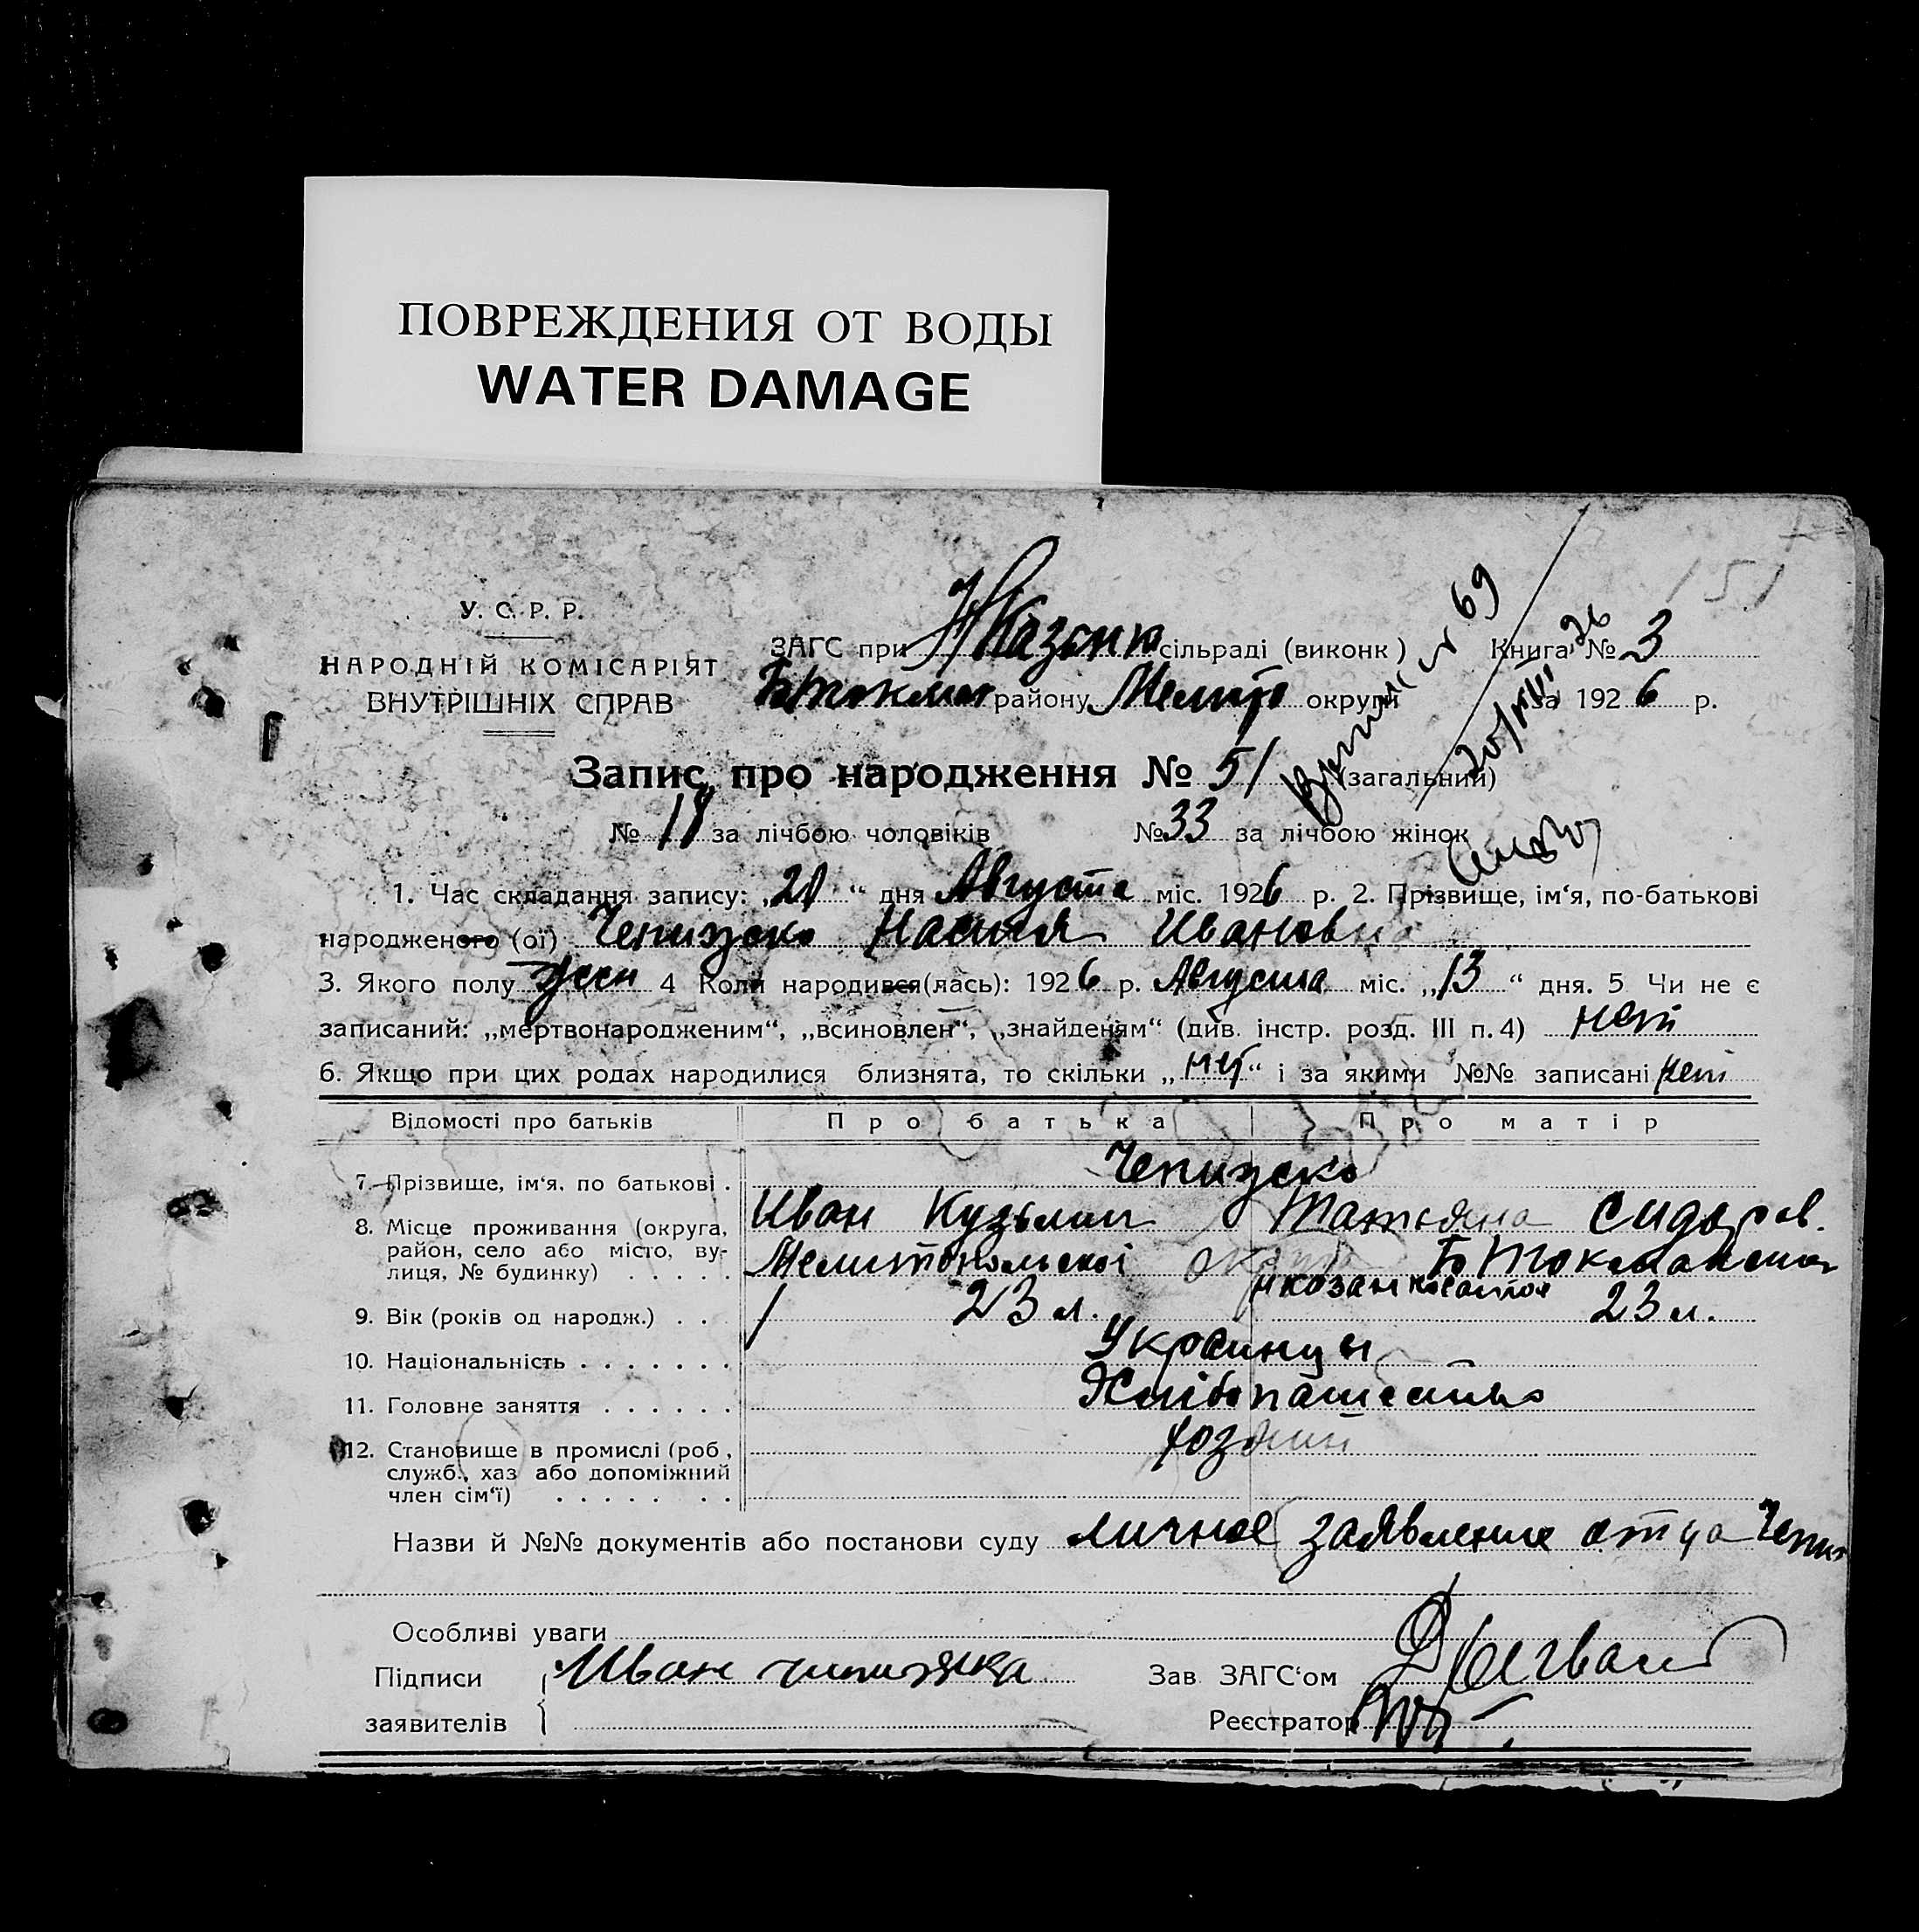 ПОВРЕЖДЕНИЯ ОТ ВОДЫ
WATER DAMAGE
151
У. С. Р. Р.
НАРОДНІЙ КОМІСАРІЯТ
ВНУТРІШНІХ СПРАВ
ЗАГС при сільраді (виконк) Книга № 3
Б Токмак району Мелит округи за 1926 р.
69
Запис про народження № 51 (загальний)
№ 18 за лічбою чоловіків № 33 за лічбою жінок
1. Час складання запису: „20“ дня Августа міс. 1926 р. 2. Прізвище, ім‘я, по-батькові
народженого (ої) Ивановн
3. Якого полу жен 4 Коли народився(лась): 1926 р. Августа міс. „13“ дня. 5 Чи не є
записаний: „мертвонародженим“, „всиновлен“, „знайденям“ (див. інстр. розд. III п. 4) нет
6. Якщо при цих родах народилися близнята, то скільки „нет“ і за якими №№ записані нет
Відомості про батьків Про батька Про матір
7. Прізвище, ім‘я, по батькові .
Иван Кузьмич Татьяна Сидоров.
8. Місце проживання (округа, район, село або місто, вулиця, № будинку) . . . . . Мелитопольскої Б Токмакский
9. Вік (років од народж.) . . . 23 л. 23 л.
10. Національність . . . . . . . Украинцы
11. Головне заняття . . . . . .
12. Становище в промислі (роб., служб., хаз або допоміжний член сім‘ї) . . . . . . .
Назви й №№ документів або постанови суду личное заявление отца
Особливі уваги
Підписи Иван
заявителів
Зав ЗАГС‘ом
Реєстратор